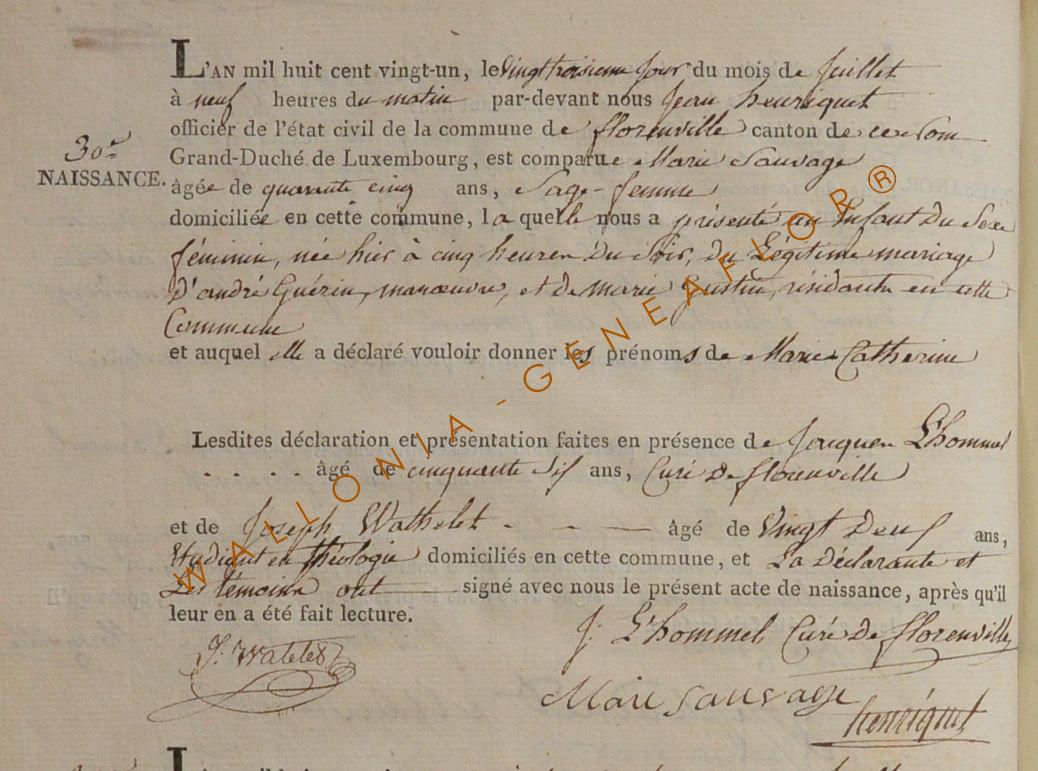 L'AN mil huit cent vingt-un, le vingt troisieme jour du mois de Juillet
à neuf heures du matin par-devant nous Jean henriquet
officier de l'état civil de la commune de florenville canton de ce nom
Grand-Duché de Luxembourg, est comparue Marie Sauvage
30e
NAISSANCE.
âgée de quarante cinq ans, Sage-femme
domiciliée en cette commune, laquelle nous a présenté un Enfant Du Sexe
féminin, née hier à cinq heures Du Soir, Du Légitime mariage
D'andré Guérin, manœuvre, et De marie Gustin, résidants en cette
Commune
et auquel elle a déclaré vouloir donner les prénoms de Marie Catherine
Lesdites déclaration et présentation faites en présence de Jacques L'hommel
. . . . âgé de cinquante Six ans, Curé De florenville
et de Joseph Wathelet - - — âgé de Vingt Deux ans,
Etudiant en théologie domiciliés en cette commune, et La Déclarante et
Les témoins ont signé avec nous le présent acte de naissance, après qu'il
leur en a été fait lecture.
J: L'hommel Curé De florenville
J: Watelet
Marie sauvage
henriquet
WALLONIA - GENEAFLOR ®